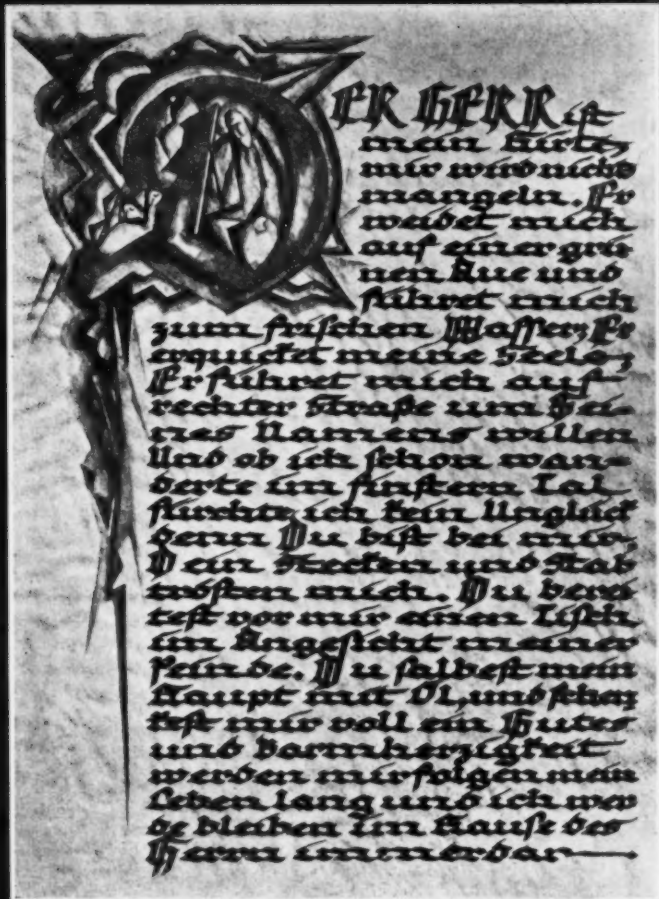 DER HERR ist
mein Hirte,
mir wird nichts
mangeln. Er
weidet mich
auf einer grü
nen Aue und
führet mich
zum frischen Wasser, Er
erquicket meine Seele,
Er führet mich auf
rechter Straße um Sei-
nes Namens willen
Und ob ich schon wan-
derte im finstern Tal
fürchte ich kein Unglück
denn Du bist bei mir,
Dein Stecken und Stab
trösten mich. Du berei
test vor mir einen Tisch
im Angesicht meiner
Feinde. Du salbest mein
Haupt mit Öl, und schen
kest mir voll ein Gutes
und Barmherzigkeit
werden mir folgen mein
Leben lang und ich wer
de bleiben im Hause des
Herrn immerdar